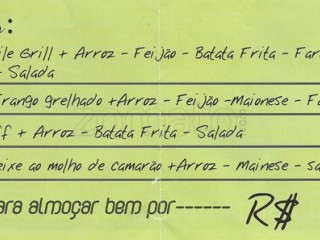 :
ile Grill + Arroz - Feijão - Batata Frita - Far
- Salada
rango grelhado +Arroz - Feijão -Maionese - F
ff + Arroz - Batata Frita - Salada
eixe ao molho de camarão +Arroz - Mainese - Sa
ara almoçar bem por------ R$